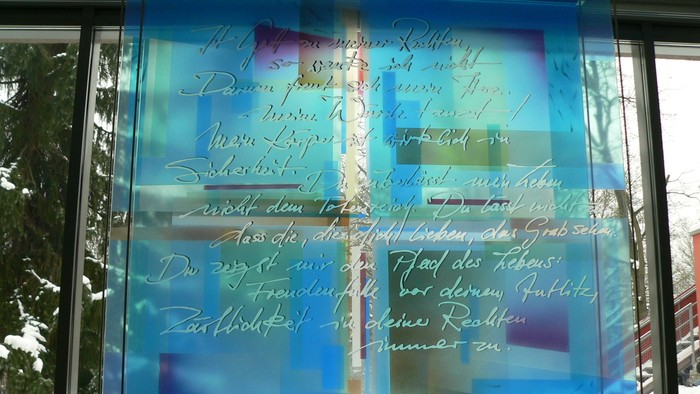 Ist Gott zu meiner Rechten,
so wanke ich nicht
Darum freut sich mein Herz.
meine Würde
Mein Körper ist wirklich in
Sicherheit. Du überlässt mein Leben
nicht dem Totenreich. Du lässt nicht zu,
dass die, die dich lieben, das Grab sehen.
Du zeigst mir den Pfad des Lebens:
Freudenfülle vor deinem Antlitz,
Zärtlichkeit in deiner Rechten
immerzu.